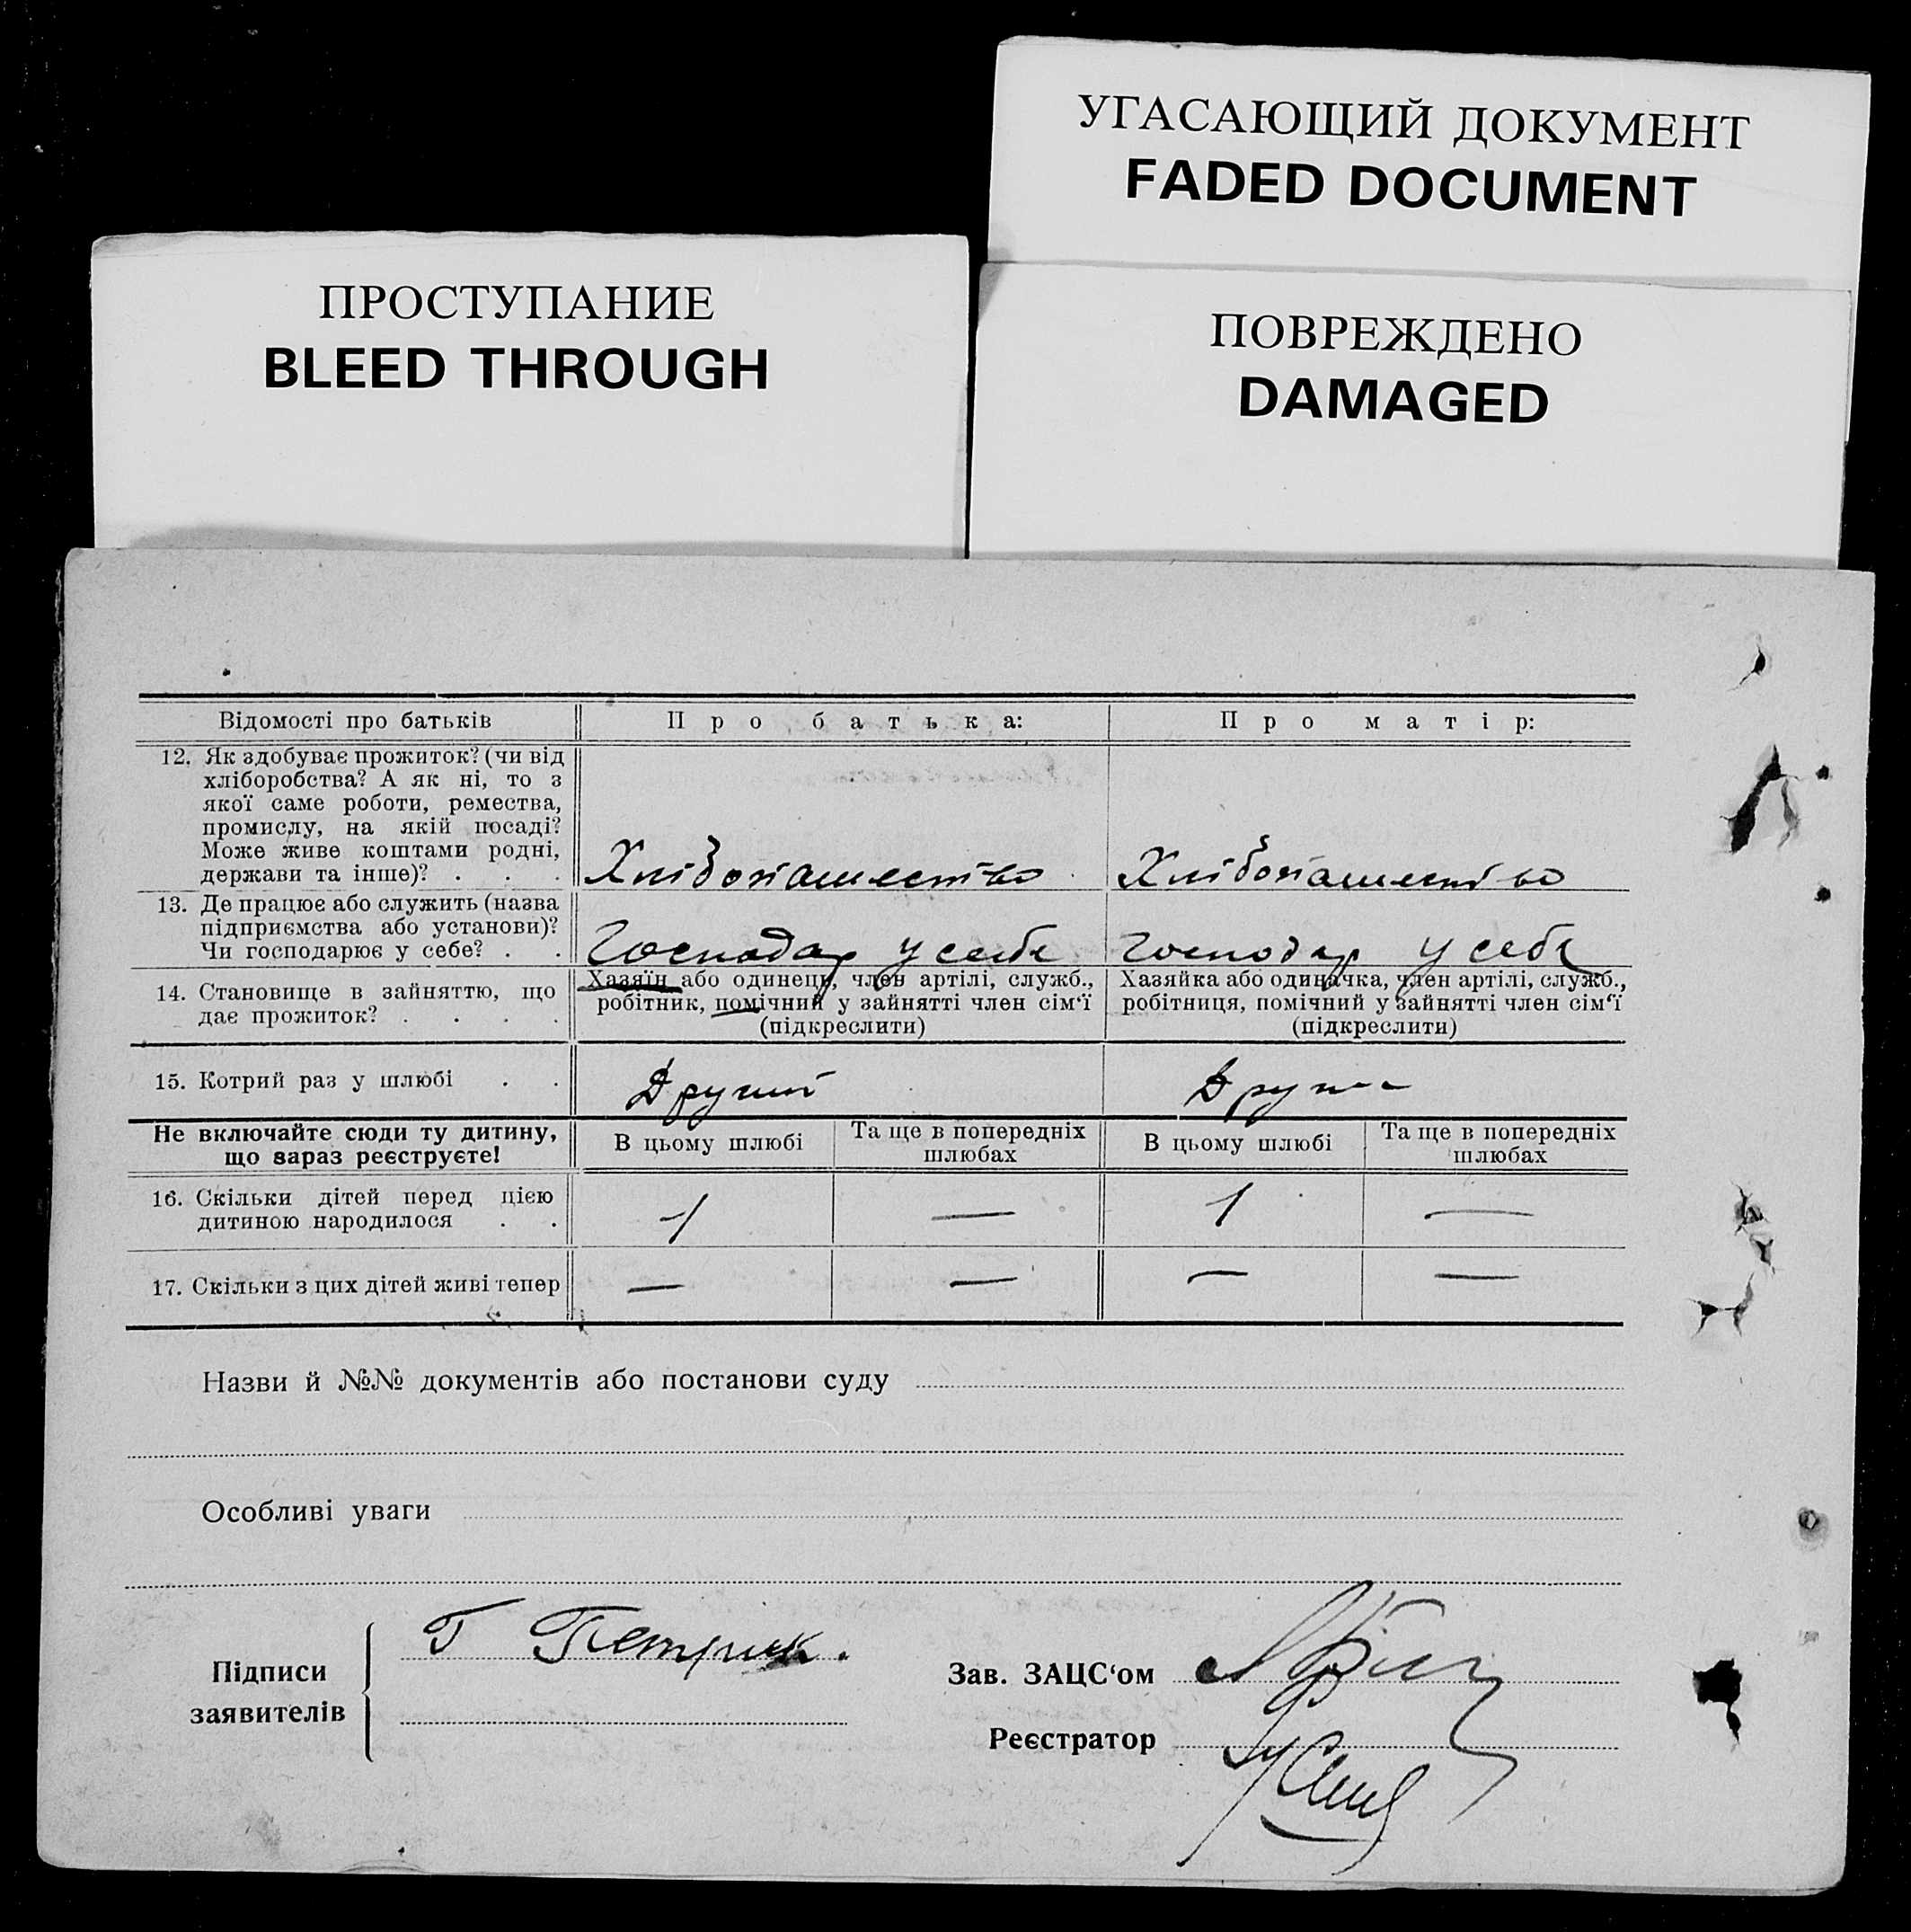 УГАСАЮЩИЙ ДОКУМЕНТ
FADED DOCUMENT
ПРОСТУПАНИЕ
BLEED THROUGH
ПОВРЕЖДЕНО
DAMAGED
Відомості про батьків
Про батька:
Про матір:
12. Як здобуває прожиток? (чи від
хліборобства? А як ні, то з
якої саме роботи, ремества,
промислу, на якій посаді?
Може живе коштами родні,
держави та інше)? . . .
Хлібопашество
Хлібопашество
13. Де працює або служить (назва
підприємства або установи)?
Чи господарює у себе? . .
Господар у себе
Господар у себе
14. Становище в зайняттю, що
дає прожиток? . . . .
Хазяїн або одинець, член артілі, служб.,
робітник, помічний у зайнятті член сім'ї
(підкреслити)
Хазяйка або одиначка, член артілі, служб.,
робітниця, помічний у зайнятті член сім'ї
(підкреслити)
15. Котрий раз у шлюбі . .
Другий
Не включайте сюди ту дитину,
що зараз реєструєте!
В цьому шлюбі
Та ще в попередніх
шлюбах
В цьому шлюбі
Та ще в попередніх
шлюбах
16. Скільки дітей перед цією
дитиною народилося . .
1 — 1 —
17. Скільки з цих дітей живі тепер
— — — —
Назви й №№ документів або постанови суду
Особливі уваги
Підписи
заявителів
Г Петрик.
Зав. ЗАЦС'ом
Реєстратор